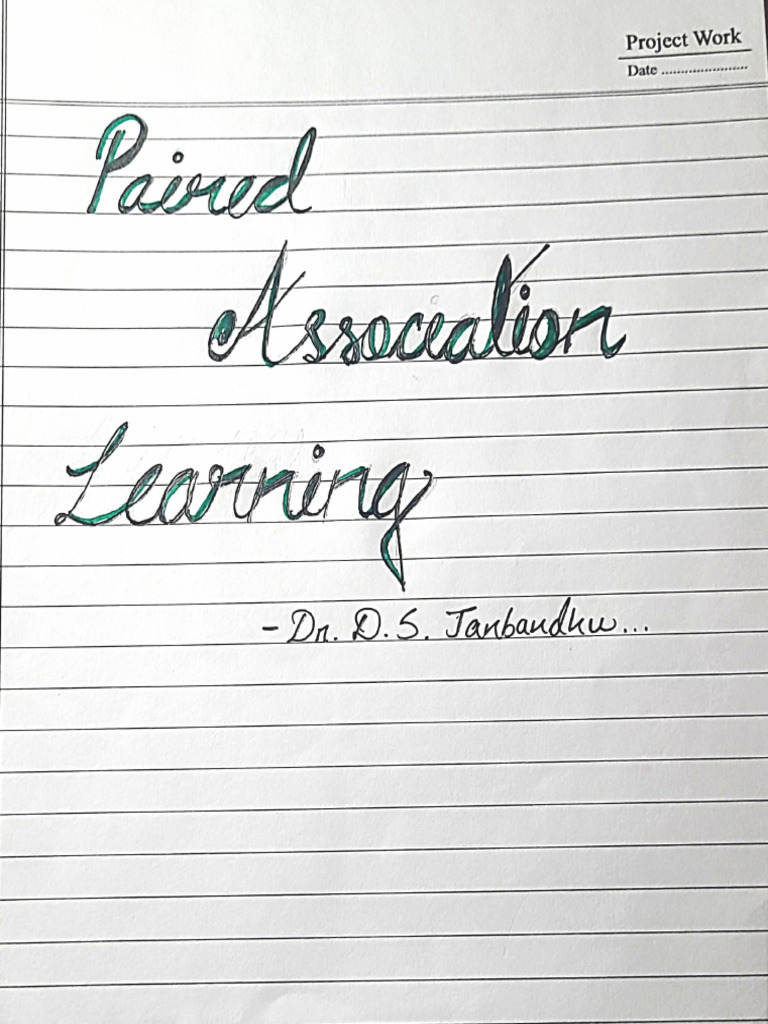 Project Work
Date ......................
Paired
Association
Learning
- Dr. D. S. Janbandhu...